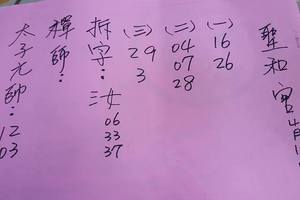 聖和宮 4月1
(一) 16 26
(二) 04 07 28
(三) 29 3
拆字: 汝 06 33 37
禪師:
太子元帥: 12 03